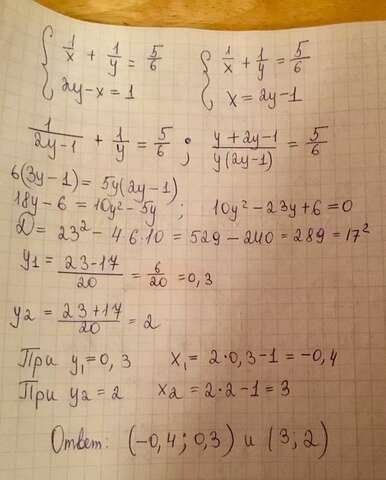 { 1/x + 1/y = 5/6    { 1/x + 1/y = 5/6
{ 2y-x=1    { x=2y-1
1/(2y-1) + 1/y = 5/6 ; (y+2y-1)/(y(2y-1)) = 5/6
6(3y-1)=5y(2y-1)
18y-6=10y²-5y ; 10y²-23y+6=0
D=23²-4·6·10=529-240=289=17²
y1=(23-17)/20=6/20=0,3
y2=(23+17)/20=2
При y₁=0,3 x₁=2·0,3-1=-0,4
При y2=2 x2=2·2-1=3
Ответ: (-0,4; 0,3) и (3; 2)